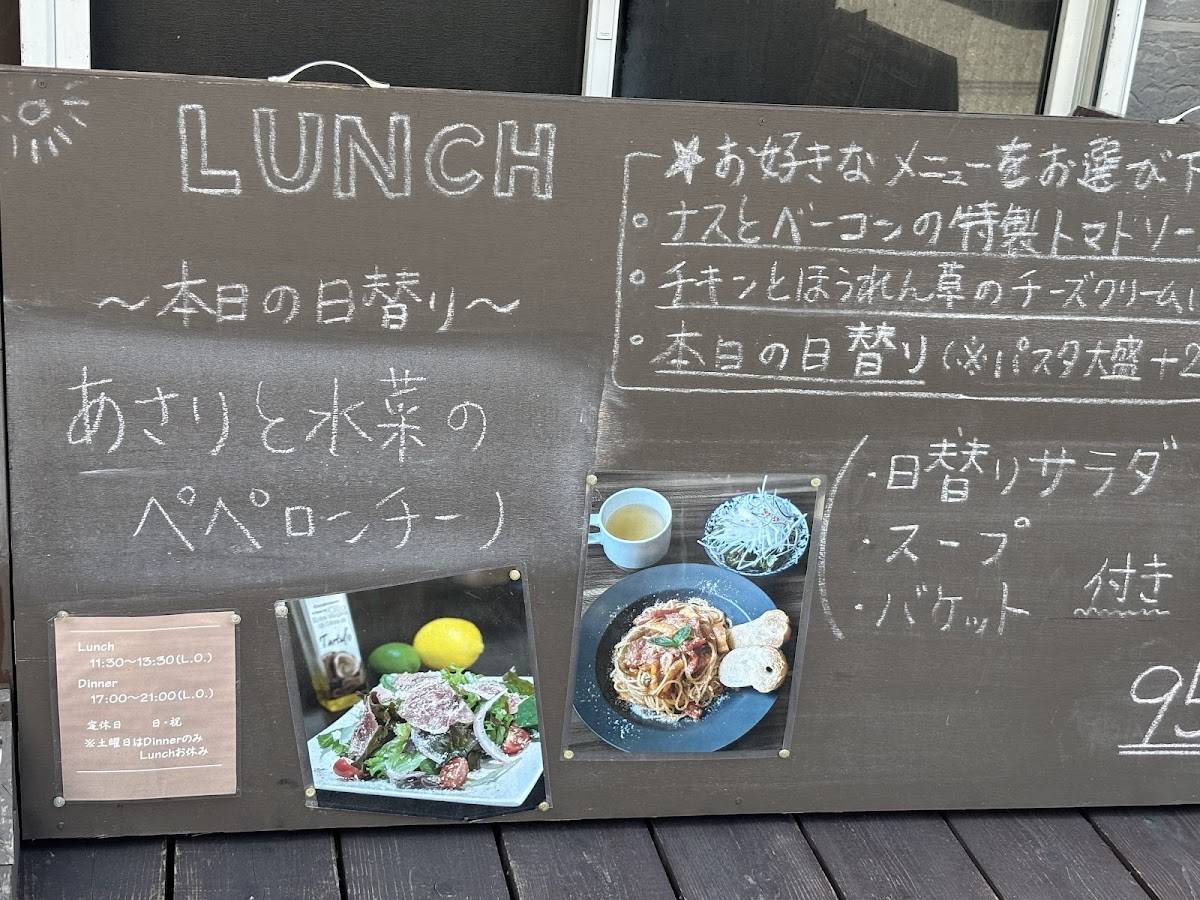 LUNCH
～本日の日替り～
あさりと水菜の
ペペロンチーノ
★お好きなメニューをお選び下
・ナスとベーコンの特製トマトソー
・チキンとほうれん草のチーズクリーム
・本日の日替り(※パスタ大盛+2
・日替りサラダ
・スープ
・バケット 付き
95
Lunch
11:30～13:30(L.O.)
Dinner
17:00～21:00(L.O.)
定休日 日・祝
※土曜日はDinnerのみ
Lunchお休み
Tartufo